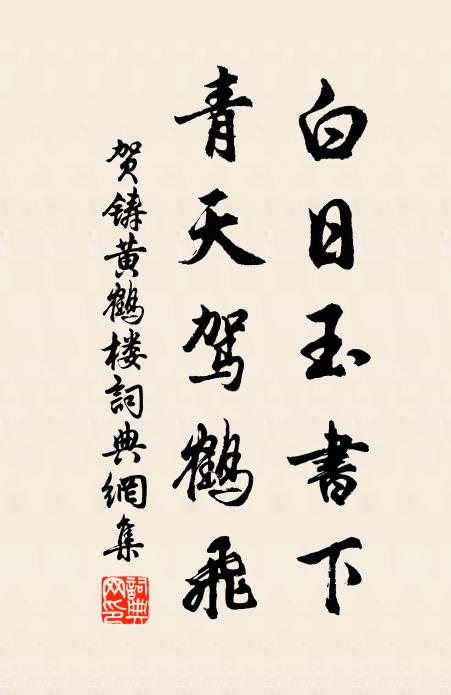 白日玉書下
青天駕鶴飛
贺鑄黄鶴楼詞典網集
詞典网印